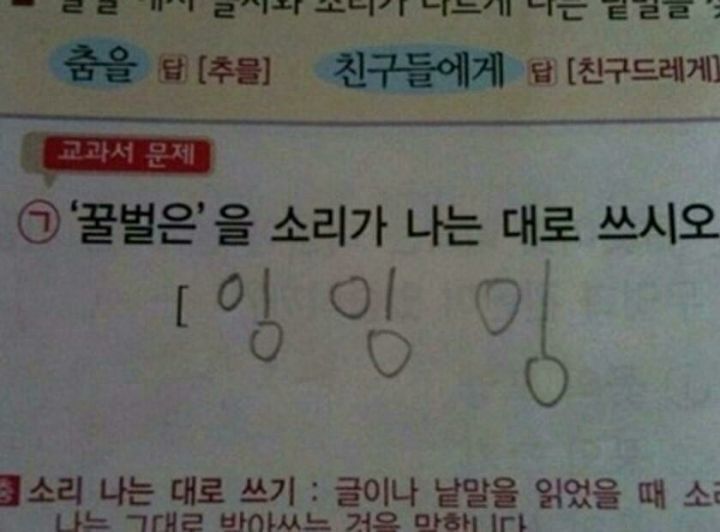 에서 글자와 소리가 다르게 나는 낱말을
춤을 답 [추믈] 친구들에게 답 [친구드레게]
교과서 문제
㉠ '꿀벌은'을 소리가 나는 대로 쓰시오
[ 잉 잉 잉
소리 나는 대로 쓰기 : 글이나 낱말을 읽었을 때 소
나는 그대로 받아쓰는 것을 말합니다